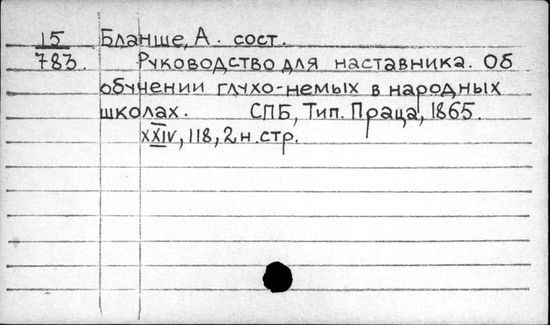 15 Бланше, А. сост.
783. Руководство для наставника. Об
обучении глухо-немых в народных
школах. СПБ, Тип. Праца, 1865.
XXIV, 118, 2 н. стр.